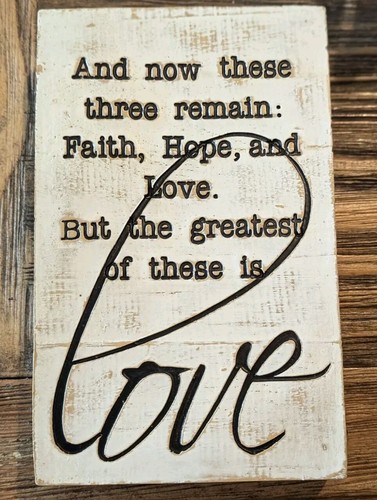 And now these
three remain:
Faith, Hope, and
Love.
But the greatest
of these is
love